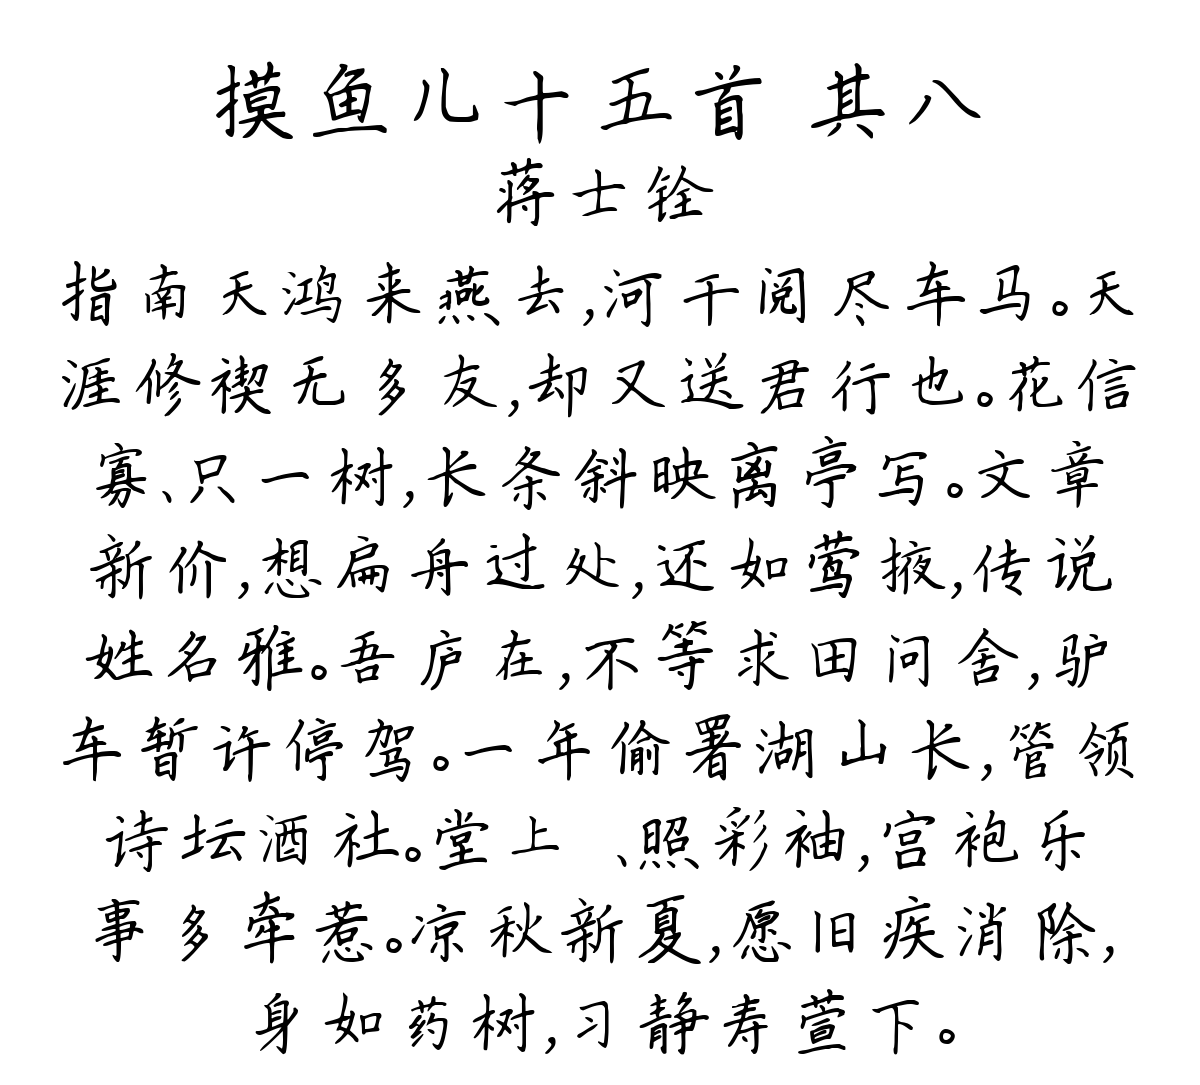 摸鱼儿十五首 其八
蒋士铨
指南天鸿来燕去,河干阅尽车马。天
涯修禊无多友,却又送君行也。花信
寡、只一树,长条斜映离亭写。文章
新价,想扁舟过处,还如莺掖,传说
姓名雅。吾庐在,不等求田问舍,驴
车暂许停驾。一年偷署湖山长,管领
诗坛酒社。堂上 、照彩袖,宫袍乐
事多牵惹。凉秋新夏,愿旧疾消除,
身如药树,习静寿萱下。